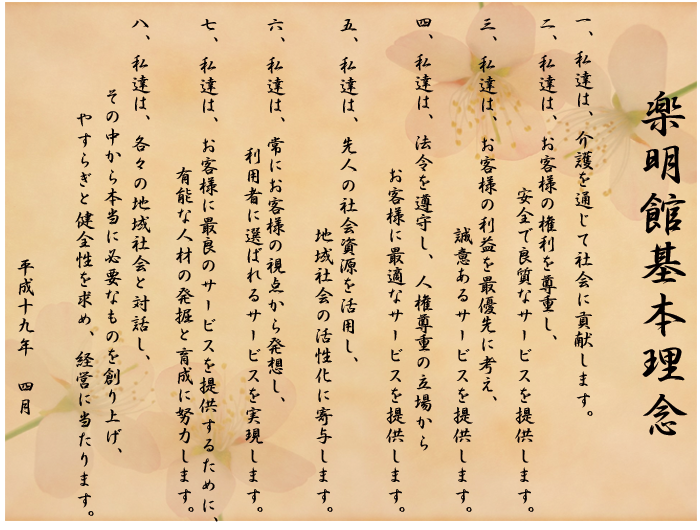 楽明館基本理念
一、私達は、介護を通じて社会に貢献します。
二、私達は、お客様の権利を尊重し、
安全で良質なサービスを提供します。
三、私達は、お客様の利益を最優先に考え、
誠意あるサービスを提供します。
四、私達は、法令を遵守し、人権尊重の立場から
お客様に最適なサービスを提供します。
五、私達は、先人の社会資源を活用し、
地域社会の活性化に寄与します。
六、私達は、常にお客様の視点から発想し、
利用者に選ばれるサービスを実現します。
七、私達は、お客様に最良のサービスを提供するために、
有能な人材の発掘と育成に努力します。
八、私達は、各々の地域社会と対話し、
その中から本当に必要なものを創り上げ、
やすらぎと健全性を求め、経営に当たります。
平成十九年 四月